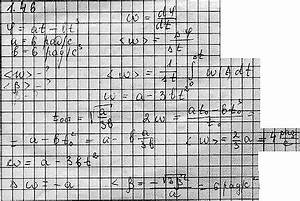 1.46
φ = at - bt³
a = 6 рад/с
b = 2 рад/с³
<ω> - ?
<β> - ?
ω = dφ/dt
<ω> = Δφ/Δt
<ω> = 1/Δt ∫₀^Δt ω(t)dt
ω = a - 3bt²
t₀ = √(a/3b)
<ω> = (at₀ - bt₀³)/t₀ =
= a - bt₀² = a - b a/3b
<ω> = 2/3 a = 4 рад/с
ω = a - 3bt²
Δω = -a